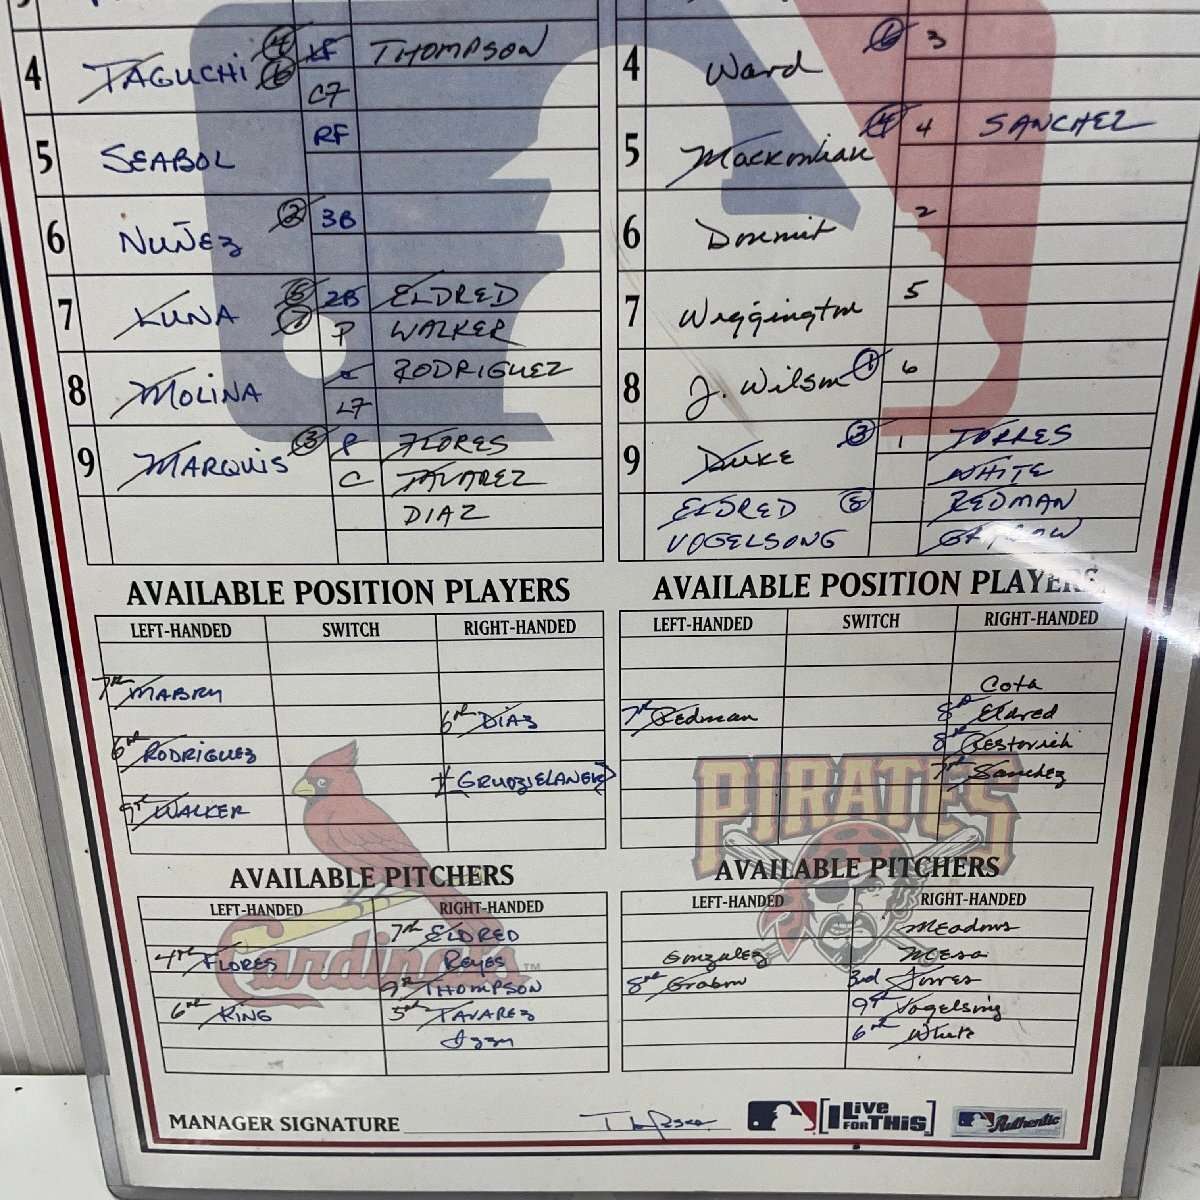 4 TAGUCHI 4 6 LF THOMPSON
C7
5 SEABOL RF
6 NUÑEZ 2 3B
7 LUNA 5 7 2B ELDRED
P WALKER
8 MOLINA RODRIGUEZ
L7
9 MARQUIS 3 P FLORES
C TAVAREZ
DIAZ
4 Ward 6 3
5 Mackowiak 4 4 SANCHEZ
6 Doumit 2
7 Wigginton 5
8 J. Wilson 1 6
9 DUKE 3 1 TORRES
WHITE
ELDRED 8 REDMAN
VOGELSONG GRABOW
AVAILABLE POSITION PLAYERS
LEFT-HANDED SWITCH RIGHT-HANDED
7th MABRY
6th DIAZ
6th RODRIGUEZ
GRUDZIELANEK
9th WALKER
AVAILABLE POSITION PLAYERS
LEFT-HANDED SWITCH RIGHT-HANDED
Cota
7th Redman 8th Eldred
8th Restovich
7th Sanchez
PIRATES
AVAILABLE PITCHERS
LEFT-HANDED RIGHT-HANDED
7th ELDRED
4th FLORES REYES
9th THOMPSON
6th KING 5th TAVAREZ
Izzy
Cardinals TM
AVAILABLE PITCHERS
LEFT-HANDED RIGHT-HANDED
Meadows
Gonzalez Mesa
8th Grabow 3rd Torres
9th Vogelsong
6th White
MANAGER SIGNATURE
I Live FOR THIS
Authentic